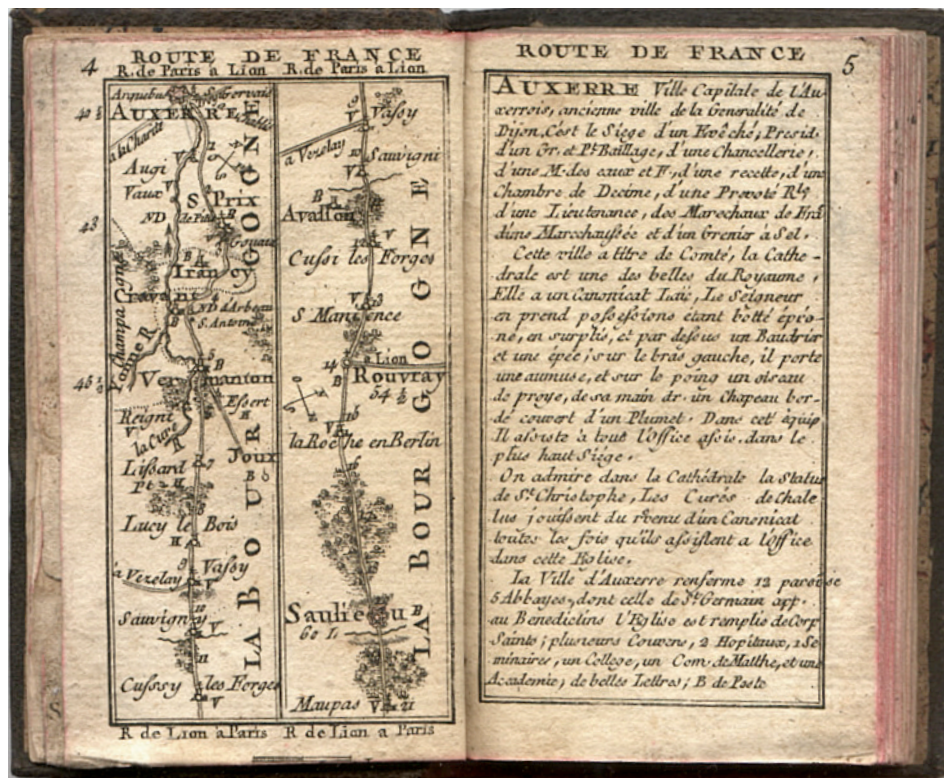 4
ROUTE DE FRANCE
R. de Paris a Lion R. de Paris a Lion
Arquebuse
S. Gervais
AUXERRE
40 ½
a la Charité
Chablis
1
Augi
V
6
Vaux
V
2
S Prix
ND
de Pitié
B
43
Gouaix
B
Irancy
Champagne
Cravant
4
ND d'Arbeau
S. Antoine
Yonne R
5
45 ½
B
Vermanton
Essert
H
Reigni
V
la Cure R
Joux
B
Lissard
7
Pt
H
8
Lucy le Bois
H
9
Vassy
a Vezelay
V
10
Sauvigny
V
11
Cussy les Forges
V
LA BOURGOGNE
R de Lion a Paris
Vassy
V
a Vezelay
10
Sauvigni
V
B
Avallon
12
V
Cussi les Forges
V
13
S Manience
Lion
14
B
Rouvray
54 ½
15
V
la Roche en Berlin
16
Saulieu
B
60 L
Maupas V
21
LA BOURGOGNE
R de Lion a Paris
ROUTE DE FRANCE
5
AUXERRE Ville Capitale de l'Au
xerrois, ancienne ville de la Generalité de
Dijon, C'est le Siege d'un Evêché, Presid.
d'un Gr. et Pt. Baillage, d'une Chancellerie,
d'une M. des eaux et F., d'une recette, d'une
Chambre de Decime, d'une Prevoté Rle,
d'une Lieutenance, des Marechaux de Fra
d'une Marechaussée et d'un Grenier à Sel.
Cette ville a titre de Comté, la Cathe-
drale est une des belles du Royaume,
Elle a un Canonicat Laïc, Le Seigneur
en prend possessions étant botté epro-
né, en surplis, et par dessus un Baudrier
et une épée; sur le bras gauche, il porte
une aumuse, et sur le poing un oiseau
de proye, de sa main dr. un Chapeau bor-
dé couvert d'un Plumet. Dans cet équip
Il assiste à tout l'Office assis. dans le
plus haut Siége.
On admire dans la Cathédrale la Statue
de St. Christophe, Les Curés de Chale
lus jouissent du revenu d'un Canonicat
toutes les fois qu'ils assistent a l'office
dans cette Eglise.
La Ville d'Auxerre renferme 12 paroisse
5 Abbayes, dont celle de St. Germain app.
au Benedictins l'Eglise est remplie de Corp
Saints; plusieurs Couvens, 2 Hopitaux, 1 Se
minaires, un College, un Com. de Malthe, et une
Academie, de belles Lettres; B de Poste